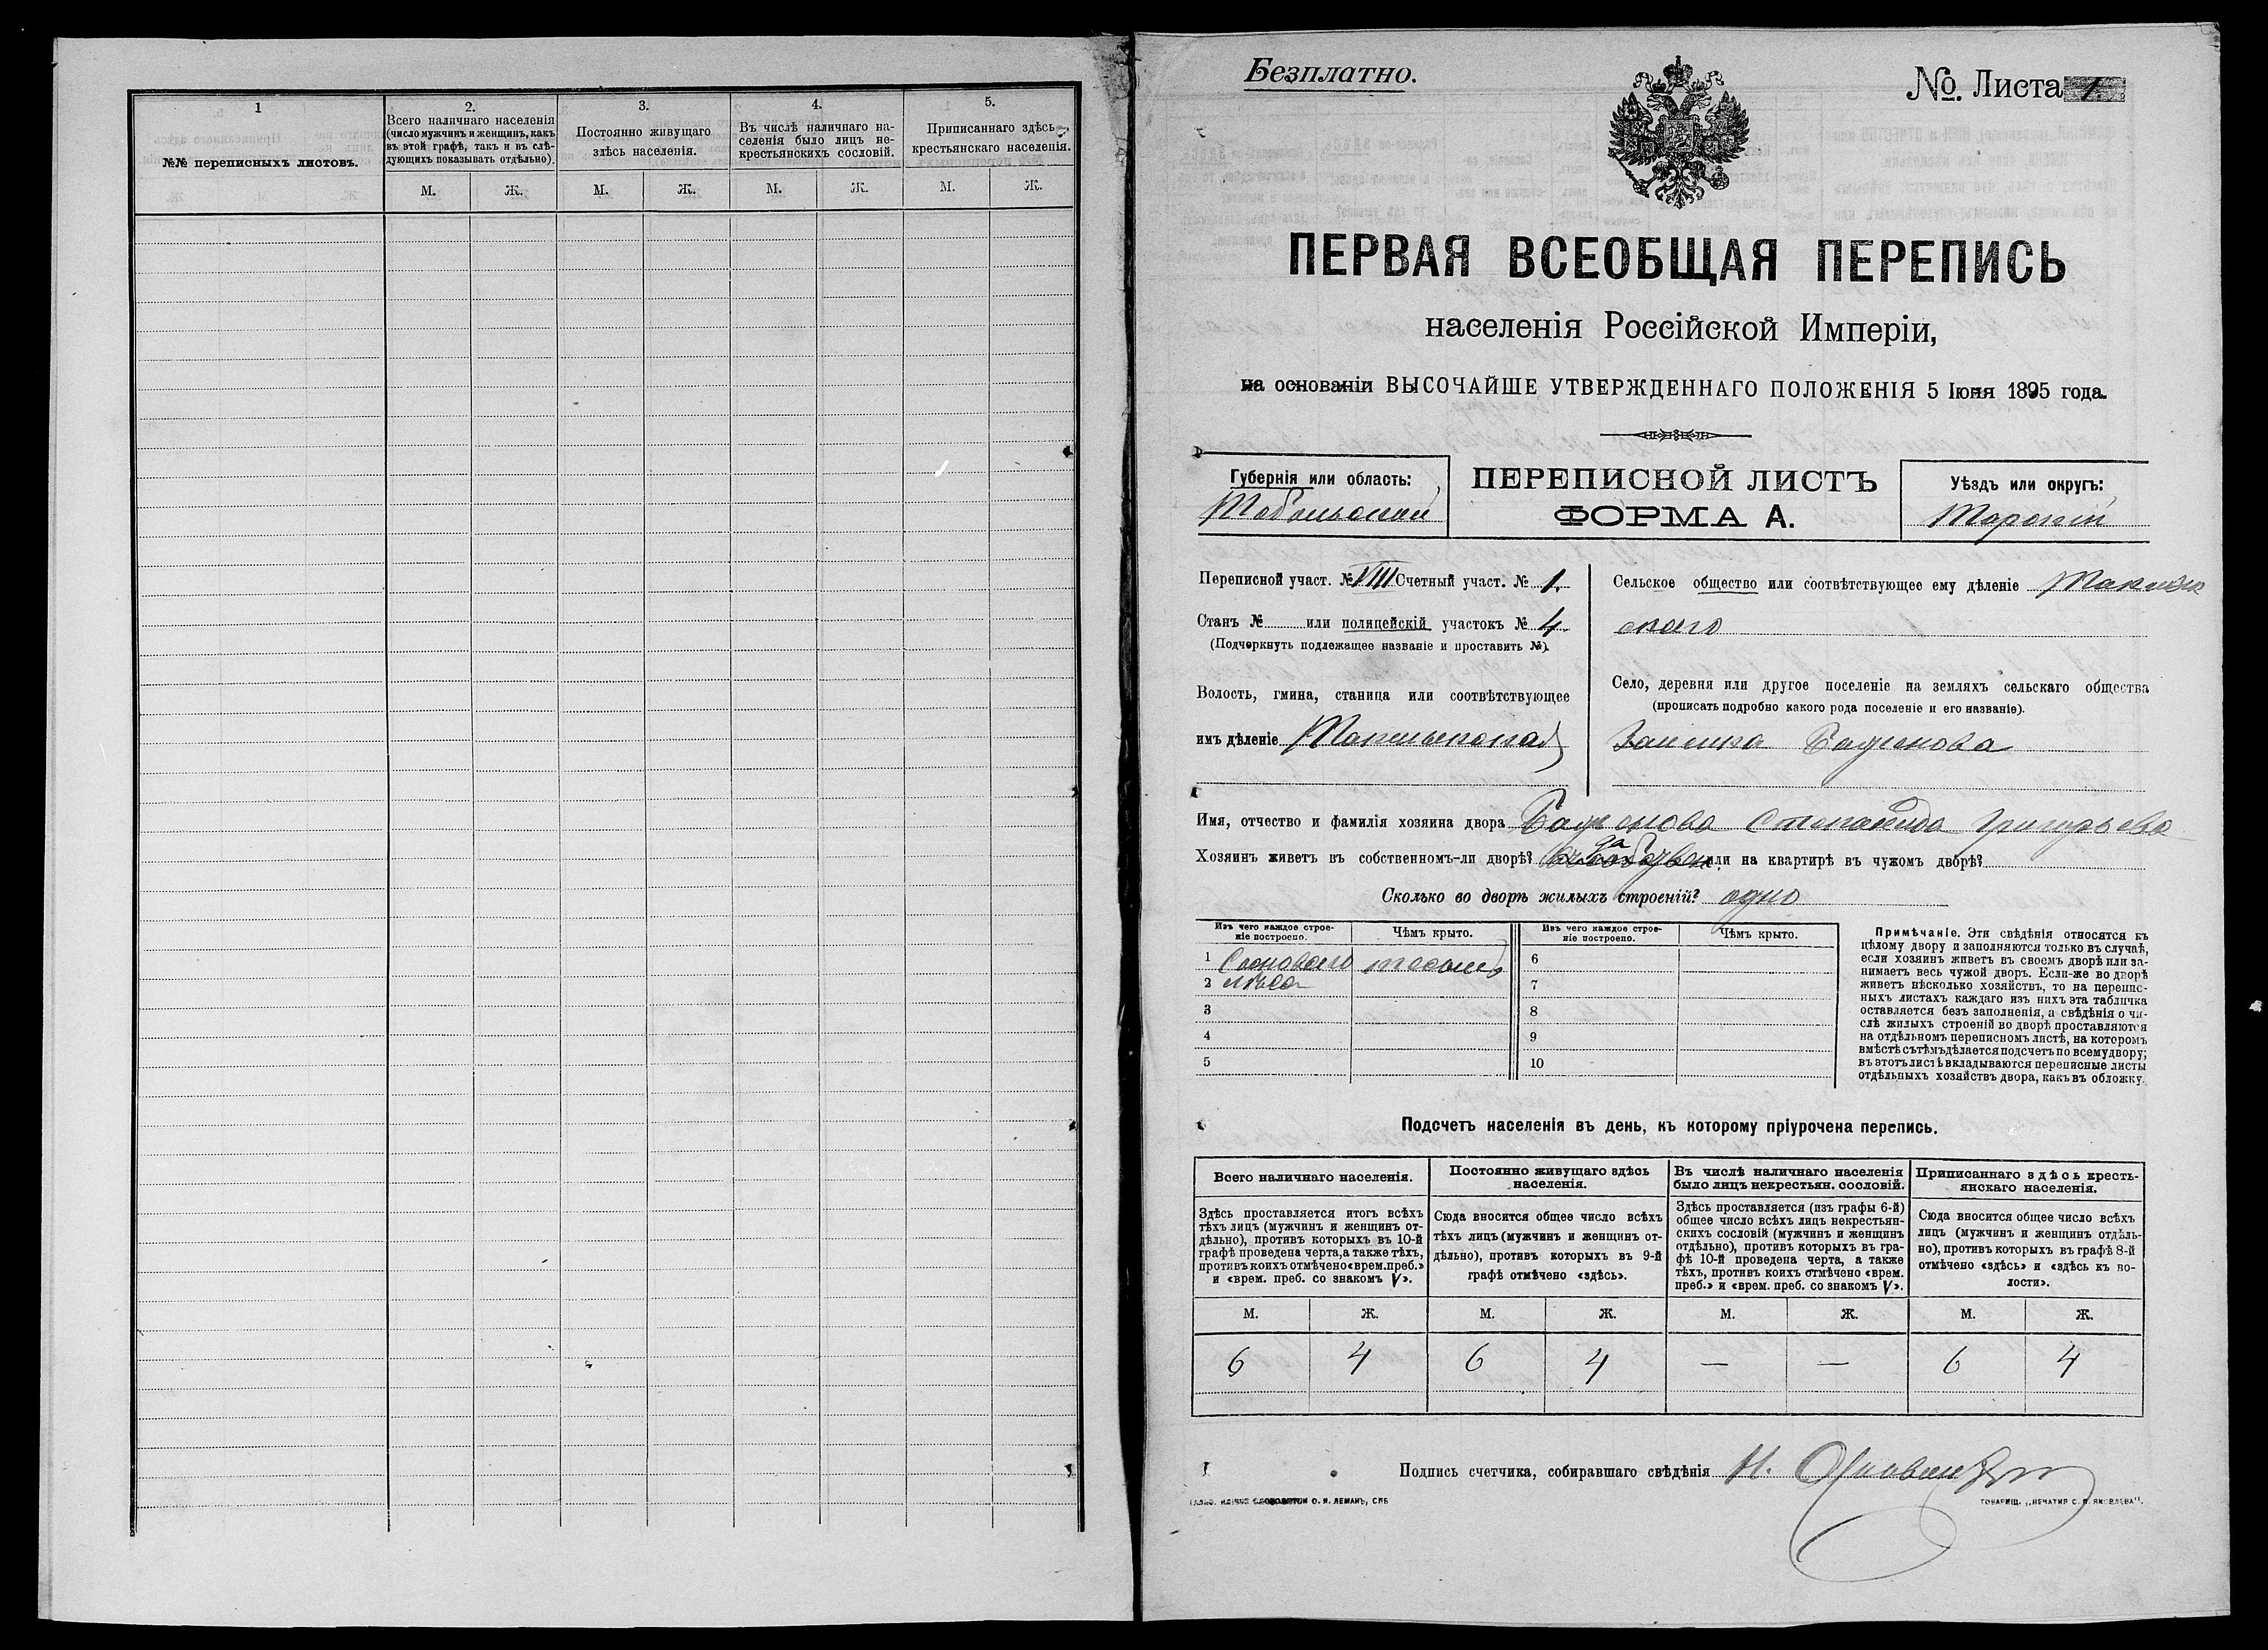 1
2.
3.
4.
5.
№№ переписныхъ листовъ.
Всего наличнаго населенія
(число мужчинъ и женщинъ, какъ
въ этой графѣ, такъ и въ слѣ-
дующихъ показывать отдѣльно).
Постоянно живущаго
здѣсь населенія.
Въ числѣ наличнаго на-
селенія было лицъ не-
крестьянскихъ сословій.
Приписаннаго здѣсь
крестьянскаго населенія.
М. Ж. М. Ж. М. Ж. М. Ж.
Безплатно.
№. Листа 1
ПЕРВАЯ ВСЕОБЩАЯ ПЕРЕПИСЬ
населенія Россійской Имперіи,
на основаніи ВЫСОЧАЙШЕ УТВЕРЖДЕННАГО ПОЛОЖЕНІЯ 5 Іюня 1895 года.
Губернія или область:
Тобольская
ПЕРЕПИСНОЙ ЛИСТЪ
ФОРМА А.
Уѣздъ или округъ:
Тарскій
Переписной участ. № VIII Счетный участ. № 1.
Станъ № или полицейскій участокъ № 4
(Подчеркнуть подлежащее названіе и проставить №).
Волость, гмина, станица или соотвѣтствующее
имъ дѣленіе
Сельское общество или соотвѣтствующее ему дѣленіе
скаго
Село, деревня или другое поселеніе на земляхъ сельскаго общества
(прописать подробно какого рода поселеніе и его названіе).
Заимка
Имя, отчество и фамилія хозяина двора Степанида Григорьева
Хозяинъ живетъ въ собственномъ-ли дворѣ? да или на квартирѣ въ чужомъ дворѣ?
Сколько во дворѣ жилыхъ строеній? одно
Изъ чего каждое строе-
ніе построено.
Чѣмъ крыто.
Изъ чего каждое строе-
ніе построено.
Чѣмъ крыто.
1 Сосноваго тесомъ 6
2 лѣса 7
3 8
4 9
5 10
Примѣчаніе. Эти свѣдѣнія относятся къ
цѣлому двору и заполняются только въ случаѣ,
если хозяинъ живетъ въ своемъ дворѣ или за-
нимаетъ весь чужой дворъ. Если-же во дворѣ
живетъ нѣсколько хозяйствъ, то на перепис-
ныхъ листахъ каждаго изъ нихъ эта табличка
оставляется безъ заполненія, а свѣдѣнія о чи-
слѣ жилыхъ строеній во дворѣ проставляются
на отдѣльномъ переписномъ листѣ, на которомъ
вмѣстѣ съ тѣмъ дѣлается подсчетъ по всему двору;
въ этотъ листъ вкладываются переписные листы
отдѣльныхъ хозяйствъ двора, какъ въ обложку.
Подсчетъ населенія въ день, къ которому пріурочена перепись.
Всего наличнаго населенія.
Постоянно живущаго здѣсь
населенія.
Въ числѣ наличнаго населенія
было лицъ некрестьян. сословій.
Приписаннаго здѣсь кресть-
янскаго населенія.
Здѣсь проставляется итогъ всѣхъ
тѣхъ лицъ (мужчинъ и женщинъ от-
дѣльно), противъ которыхъ въ 10-й
графѣ проведена черта, а также тѣхъ,
противъ коихъ отмѣчено «врем. преб.»
и «врем. преб. со знакомъ V».
Сюда вносится общее число всѣхъ
тѣхъ лицъ (мужчинъ и женщинъ от-
дѣльно), противъ которыхъ въ 9-й
графѣ отмѣчено «здѣсь».
Здѣсь проставляется (изъ графы 6-й)
общее число всѣхъ лицъ некрестьян-
скихъ сословій (мужчинъ и женщинъ
отдѣльно), противъ которыхъ въ гра-
фѣ 10-й проведена черта, а также
тѣхъ, противъ коихъ отмѣчено «врем.
преб.» и «врем. преб. со знакомъ V».
Сюда вносится общее число всѣхъ
лицъ (мужчинъ и женщинъ отдѣль-
но), противъ которыхъ въ графѣ 8-й
отмѣчено «здѣсь» и «здѣсь къ во-
лости».
М. Ж. М. Ж. М. Ж. М. Ж.
6 4 6 4 — — 6 4
Подпись счетчика, собиравшаго свѣдѣнія Н.
О. И. ЛЕМАНЪ, СПБ
ТОВАРИЩ. „ПЕЧАТНЯ С. П. ЯКОВЛЕВА".